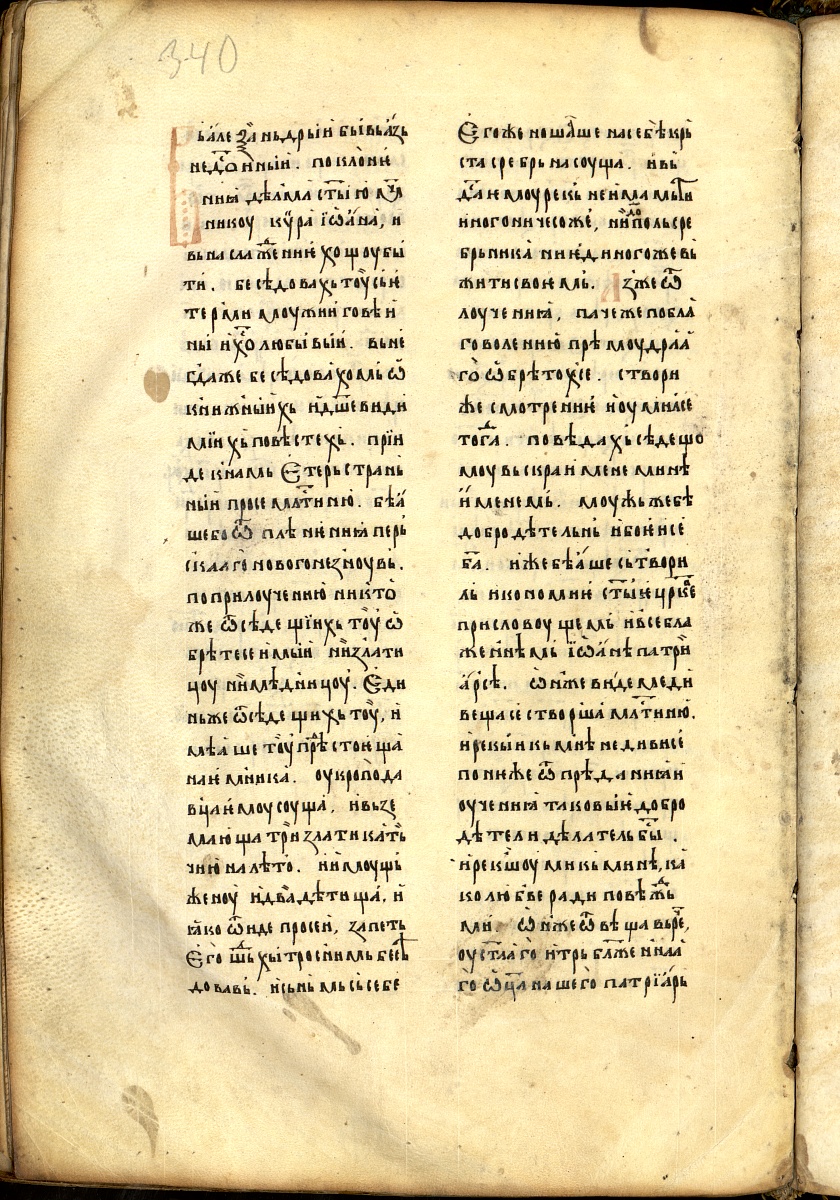 340
Въ але҆ѯаньдрїи бывьазь
недо́стоиныи. поклоне
нїꙗ дѣлꙗ ст҃ы́ю мч҃
никоу кѵ́ра їѡ҆́а́на, и
вьнаслаждение хощоу бы
ти. бесѣдовахь тоу сь и
тер꙽ми моужи говѣи
ны и хс҃олюбывыи. вьне
гда же бесѣдовахомь ѡ
книжныихь и дш҃евиди
мїихь повѣстехь. прїи
де к намь Етерь страньь
ныи просе млⷭтиню. бѣа
ше бо ѿ плѣнениꙗ перь
скааго новогонезноувь.
по прилоучению никто
же ѿ сѣдещїихь тоу ѡ
брѣте се имыи ни злати
цоу ни мѣдницоу. Еди
нь же ѿ сѣдещихь тоу, и
мѣаше тоу прѣⷣстоꙗща
наѥмника. оукропода
вца ѥмоу соуща, и вьзе
млюща три златика ть
чию на лѣто. и имоущь
женоу и два дѣтища. и
ꙗко ѿиде просеи, запеть
Его шⷣь хытросиимь бесѣ
довавь. и сьнимь сь себе
Егоже ношаше на себѣ крь
ста сребрьна соуща. и вь
дⷭа ѥмоу рекь не имамь ти
иного ничесоже, ни до поль сре
брьника ни ѥдиного же вь
жити своѥмь. Изже ѿ
лоучениꙗ, паче же по бла
говолению прѣмоудраа
го ѡбрѣтохсе. створи
же смотрение и оумилсе
тогⷣа. поведахь сѣдещо
моу вьскраи мене мине
именемь. моужь же бѣ
добродѣтельнь и бое и се
ба҃. иже бѣаше сьтвори
ль икономиѥ ст҃ыѥ цр҃кве
прислоовущемь и вьсебла
женнѣмь їѡ҆анѣ патри
арсѣ. ѡн же видемеди
веща се створша млⷭтиню.
и рекыи кь мнѣ не диви се
понѥже ѿ прѣданиꙗ и
оучениꙗ таковыѥ добро
дѣтели дѣлатель бы́сⷭ.
и рекшоу ми кь минѣ, ка
ко любве ради повѣжⷣь
ми. ѡн же ѿвѣщавь рече,
оу ст҃ааго и трьбл҃женнаа
го ѡц҃а нашего патрїарь